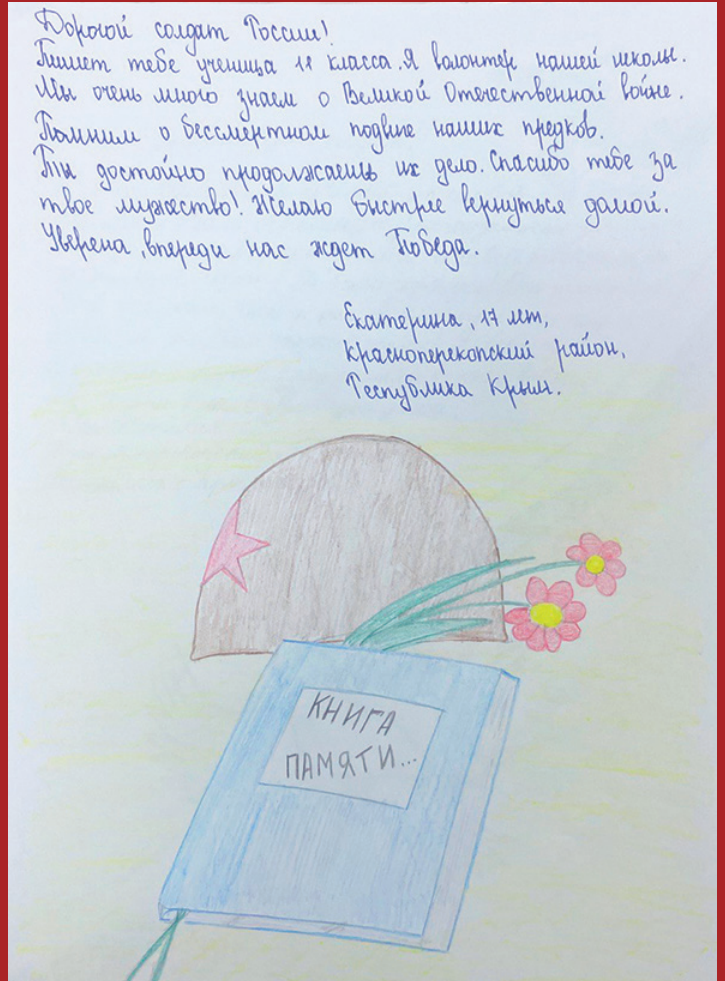 Дорогой солдат России!
Пишет тебе ученица 11 класса. Я волонтер нашей школы.
Мы очень много знаем о Великой Отечественной войне.
Помним о бессмертном подвиге наших предков.
Ты достойно продолжаешь их дело. Спасибо тебе за
твое мужество! Желаю быстрее вернуться домой.
Уверена, впереди нас ждет Победа.
Екатерина, 17 лет,
Красноперекопский район,
Республика Крым.
КНИГА
ПАМЯТИ...